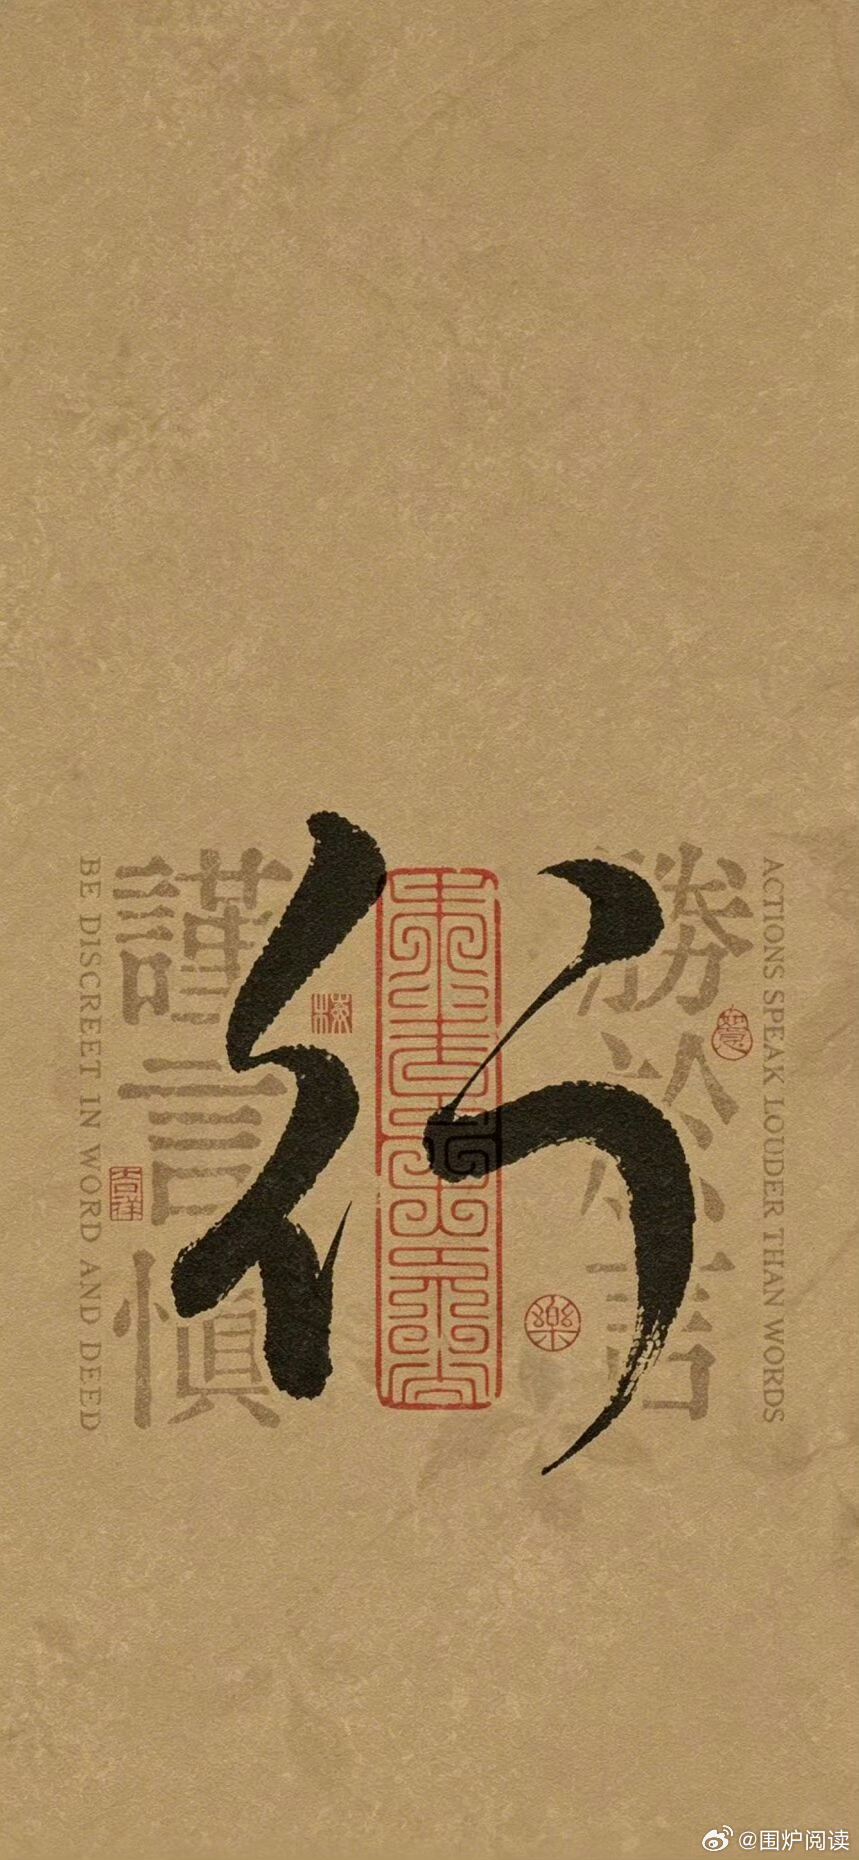 行
勝於言
謹言慎
ACTIONS SPEAK LOUDER THAN WORDS
BE DISCREET IN WORD AND DEED
樂
吉祥
@围炉阅读